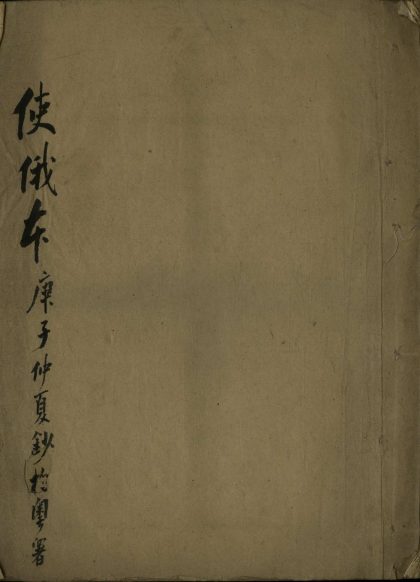 使俄本庚子仲夏鈔於粵署